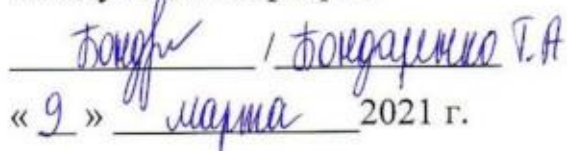 Бондр / Бондаренко Т.А
« 9 » марта 2021 г.